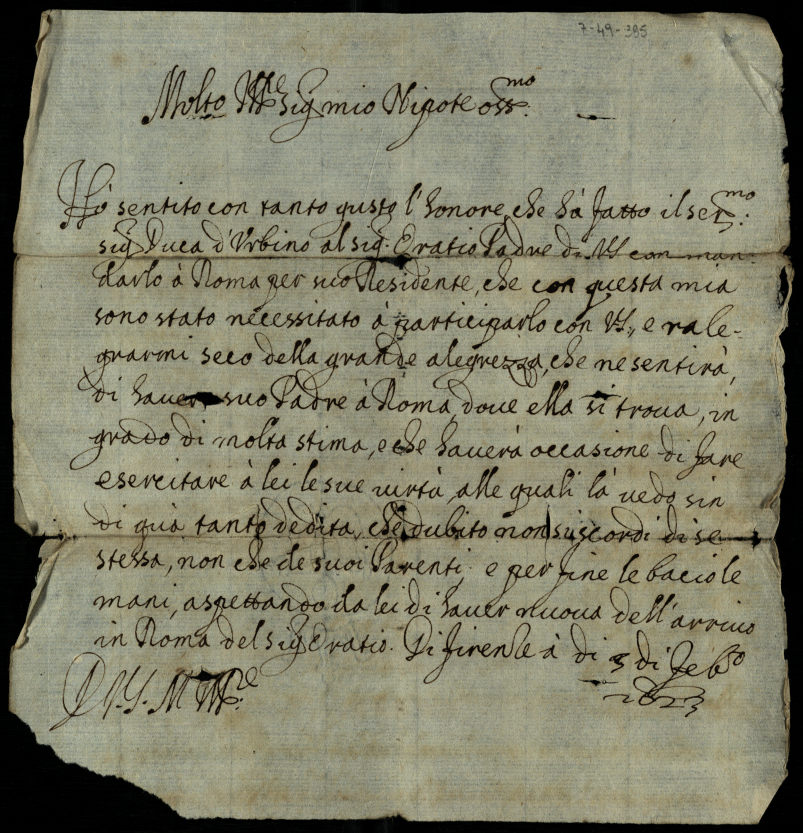 7-49-395
Molto Ill.re Sig. mio Nipote oss.mo
Hò sentito con tanto gusto l'honore, che hà fatto il ser.mo
sig. Duca d'Vrbino al sig. Oratio Padre di VS con man-
darlo à Roma per suo Residente, che con questa mia
sono stato necessitato à participarlo con VS, e rale-
grarmi seco della grande alegrezza, che ne sentirà,
di hauer suo Padre à Roma, doue ella si troua, in
grado di molta stima, e che hauerà occasione di fare
esercitare à lei le sue uirtù, alle quali là uedo sin
di quà tanto dedita, che dubito non si scordi di se
stessa, non che de suoi Parenti. e per fine le bacio le
mani, aspettando da lei di hauer nuoua dell'arriuo
in Roma del sig. Oratio. Di firenze à di 3 di Feb.o
1623
D V.S. M Ill.re